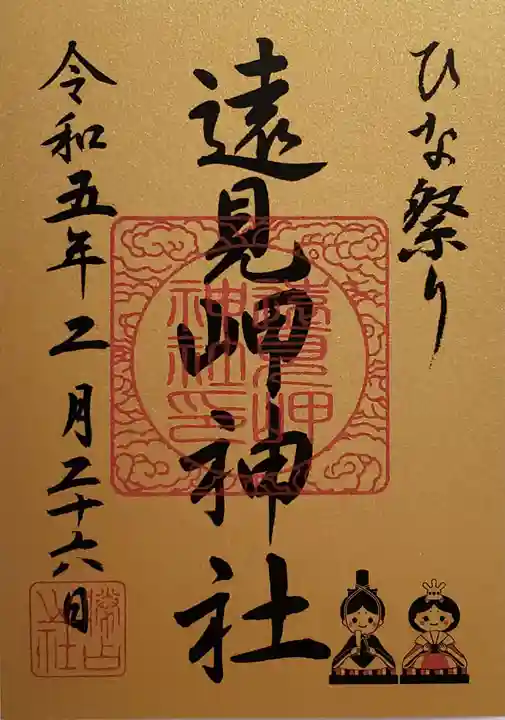 ひな祭り
遠見岬神社
令和五年二月二十六日
遠見岬
神社印